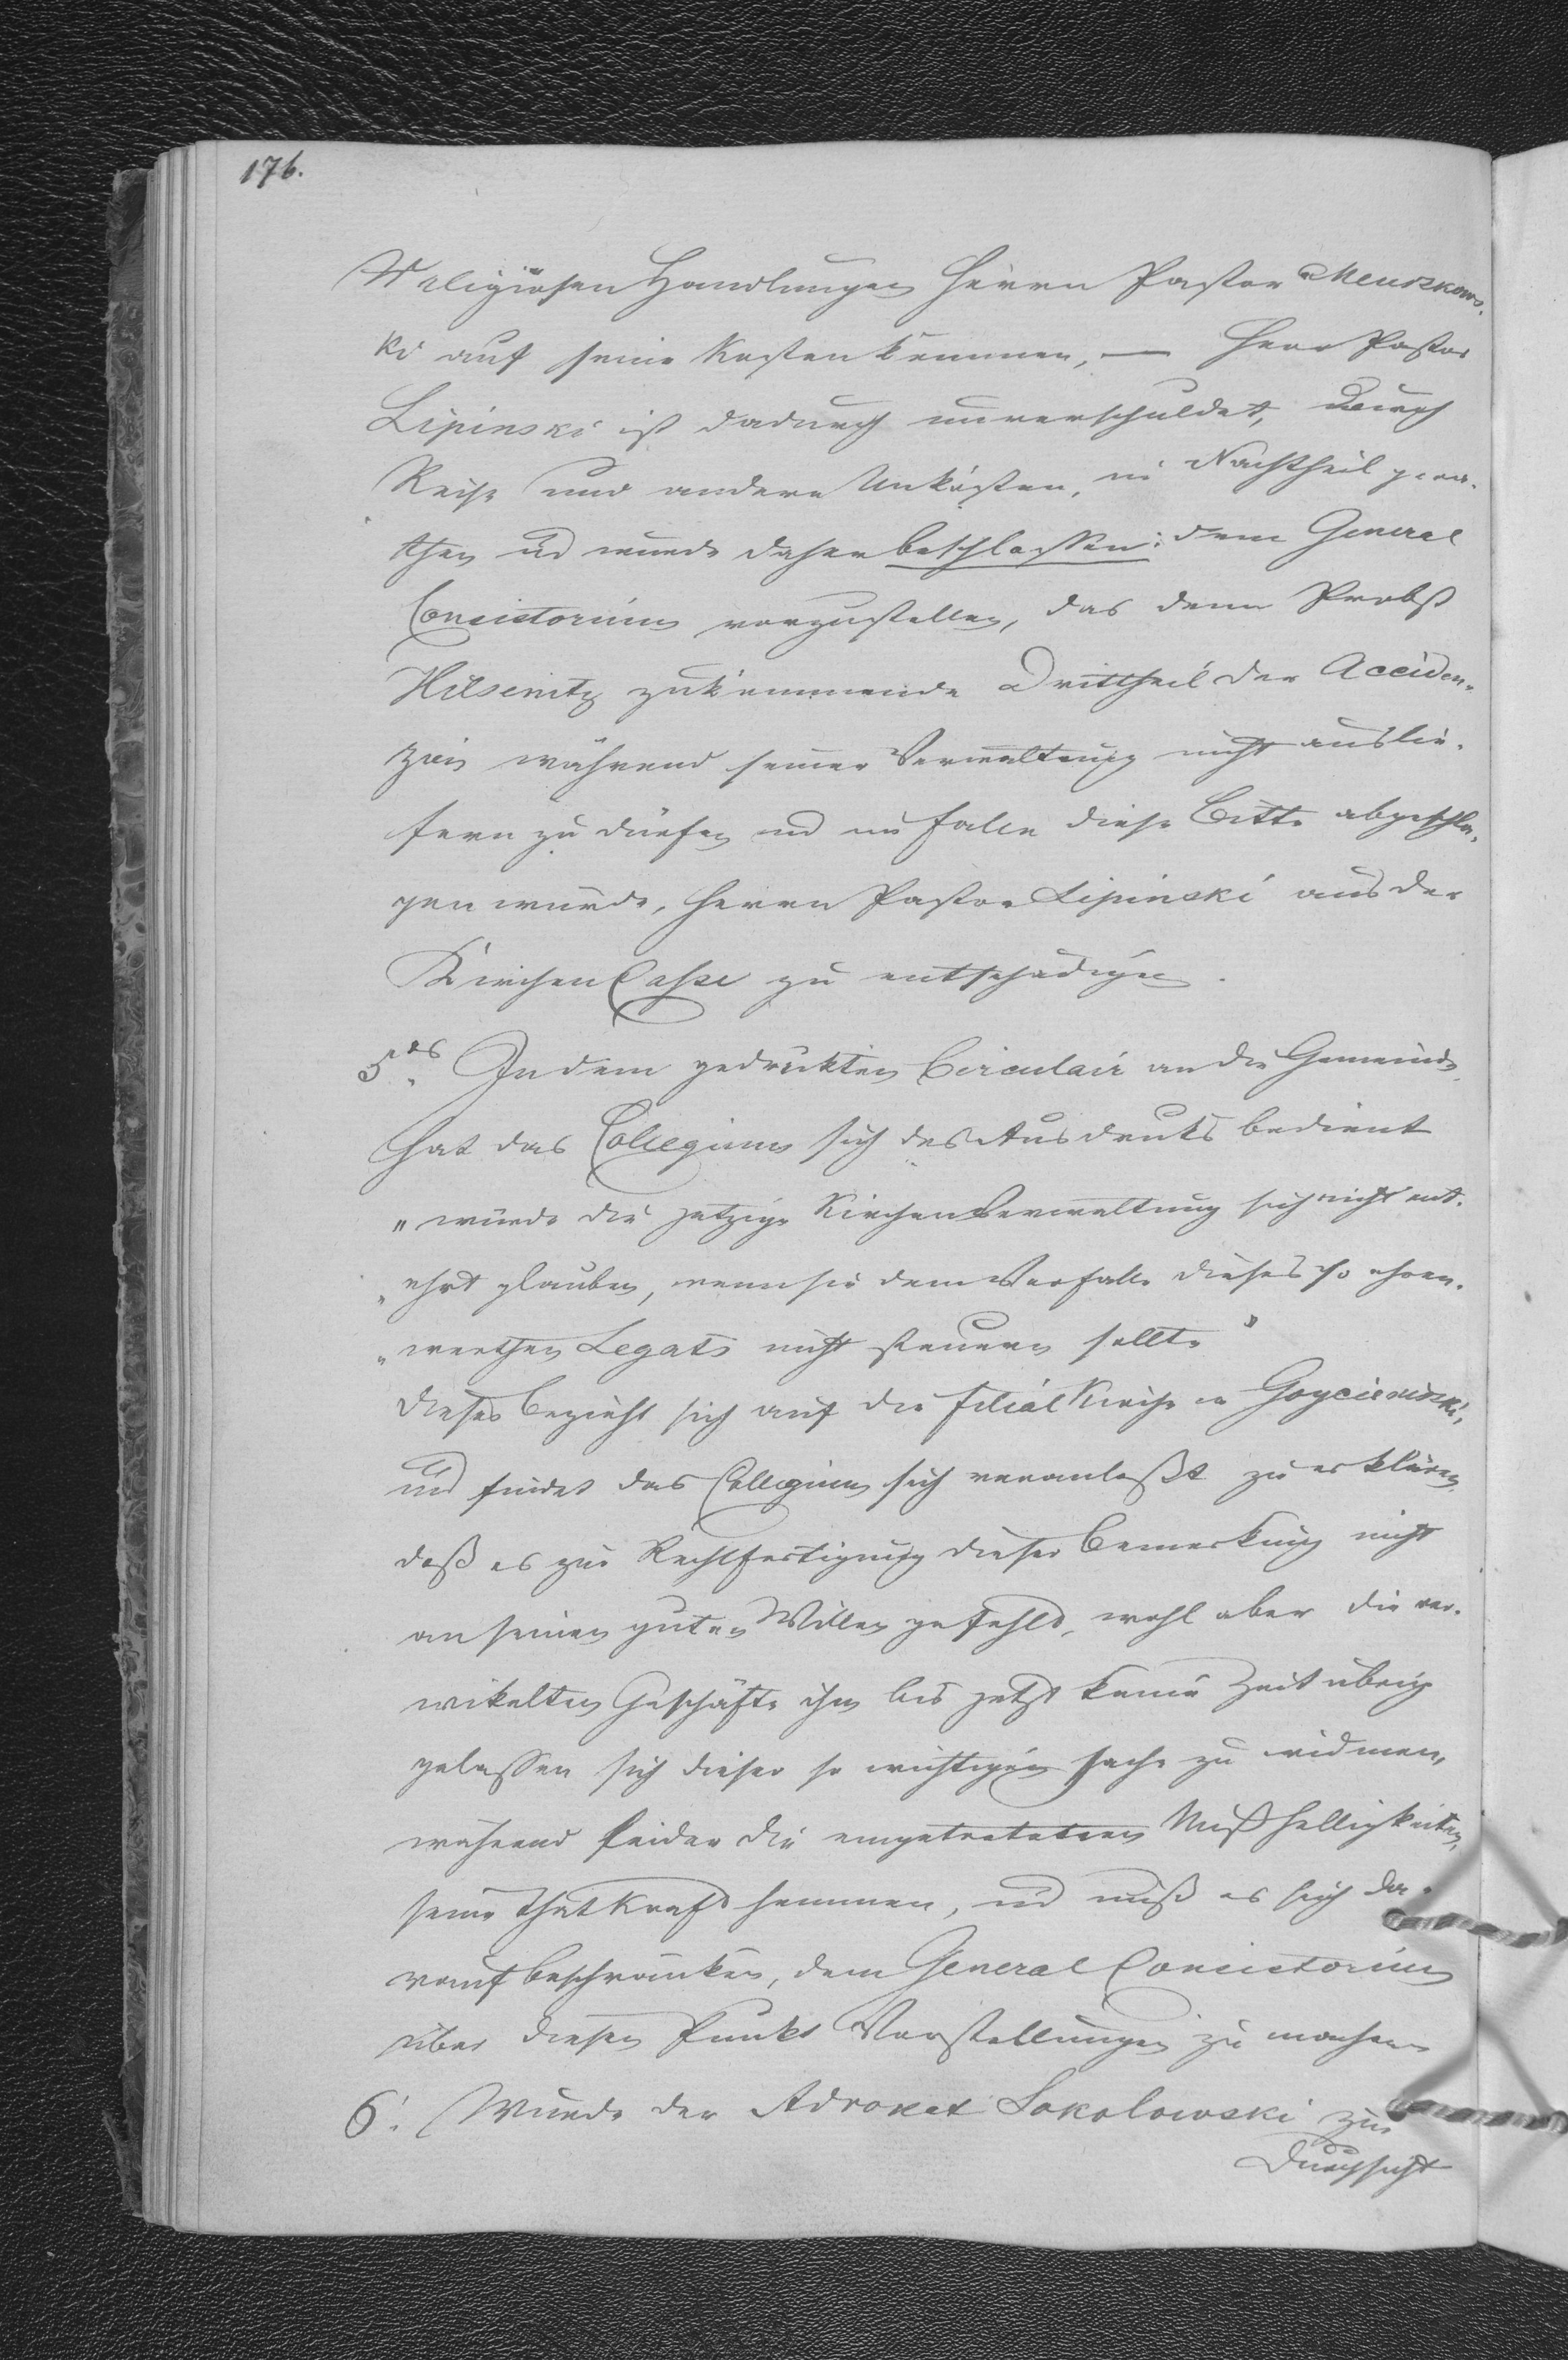 176.
Religiösen Handlungen Herrn Pastor
ki auf seine Kosten kommen, — Herr Pastor
Lipinski ist dadurch unverschuldet, durch
Reise und andere Unkösten, in Nachtheil gera-
then und wurde daher beschlossen: dem General
Consistorium vorzustellen, das dem Probst
zukommende Drittheil der Acciden-
zien während seiner Verwaltung nicht auslie-
fern zu dürfen und im Falle diese Bitte abgeschla-
gen würde, Herrn Pastor Lipinski aus der
Kirchen Casse zu entschädigen.
5tes In dem gedrukten Circulair an die Gemeinde
hat das Collegium sich des Ausdruks bedient
„würde die jetzige Kirchen Verwaltung sich nicht ent-
„ehrt glauben, wenn sie dem Verfalle dieses so ehren-
„werthen Legats nicht steuern sollte"
dieses bezieht sich auf die Filial Kirche in
und findet das Collegium sich veranlaßt zu erklären
daß es zur Rechtfertigung dieser Bemerkung nicht
an seinen guten Willen gefehlt, wohl aber die ver-
wikelten Geschäfte ihm bis jetzt keine Zeit übrig
gelassen sich dieser so wichtigen Sache zu widmen,
während leider die eingetretenen Mißhelligkeiten,
seine Thatkraft hemmen, und muß es sich da-
rauf beschränken, dem General Consistorium
über diesen Punkt Vorstellungen zu machen
6. Wurde der Advokat Sokolowski zur
Durchsicht